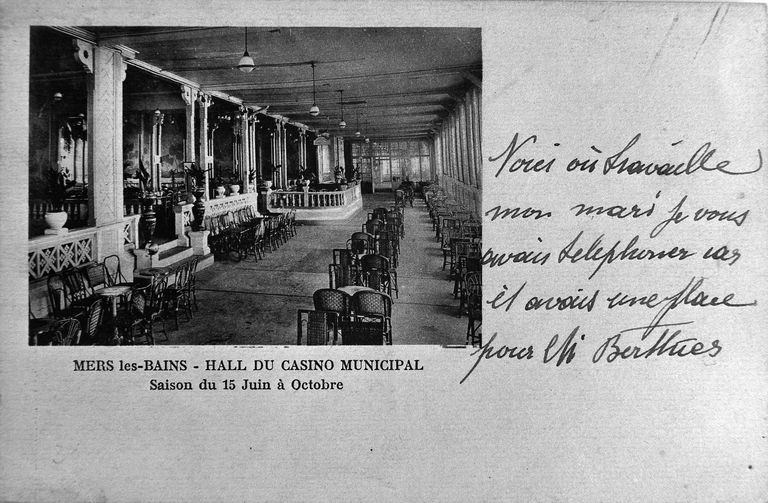 Voici où travaille
mon mari je vous
avais telephoner car
j'avais une place
pour
MERS les-BAINS - HALL DU CASINO MUNICIPAL
Saison du 15 Juin à Octobre